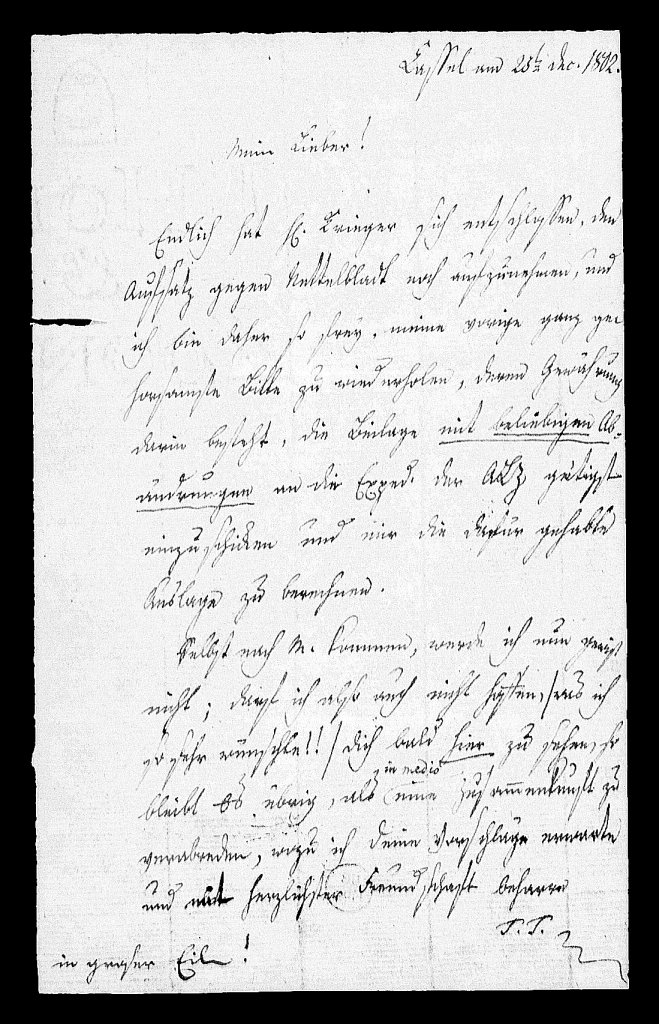 Cassel am 25t. dec. 1802.
Mein Lieber!
Endlich hat H. Krieger sich entschlossen, den
Aufsatz gegen Nettelbladt noch aufzunehmen, und
ich bin daher so frey, meine vorige ganz ge-
horsamste Bitte zu wiederholen, deren Gewährung
darin besteht, die Beilage mit beliebigen Ab-
ändrungen an die Exped. der ALZ gütigst
einzuschicken und mir die dafür gehabte
Auslage zu berechnen.
Selbst nach M. kommen, werde ich nun gewiß
nicht; darf ich also auch nicht hoffen, /was ich
so sehr wünschte!!/ Dich bald hier zu sehen, so
bleibt übrig, als in medio eine Zusammenkunft zu
verabreden, wozu ich Deine Vorschläge erwarte
und mit herzlichster Freundschaft beharre
T. T.
in groser Eil!